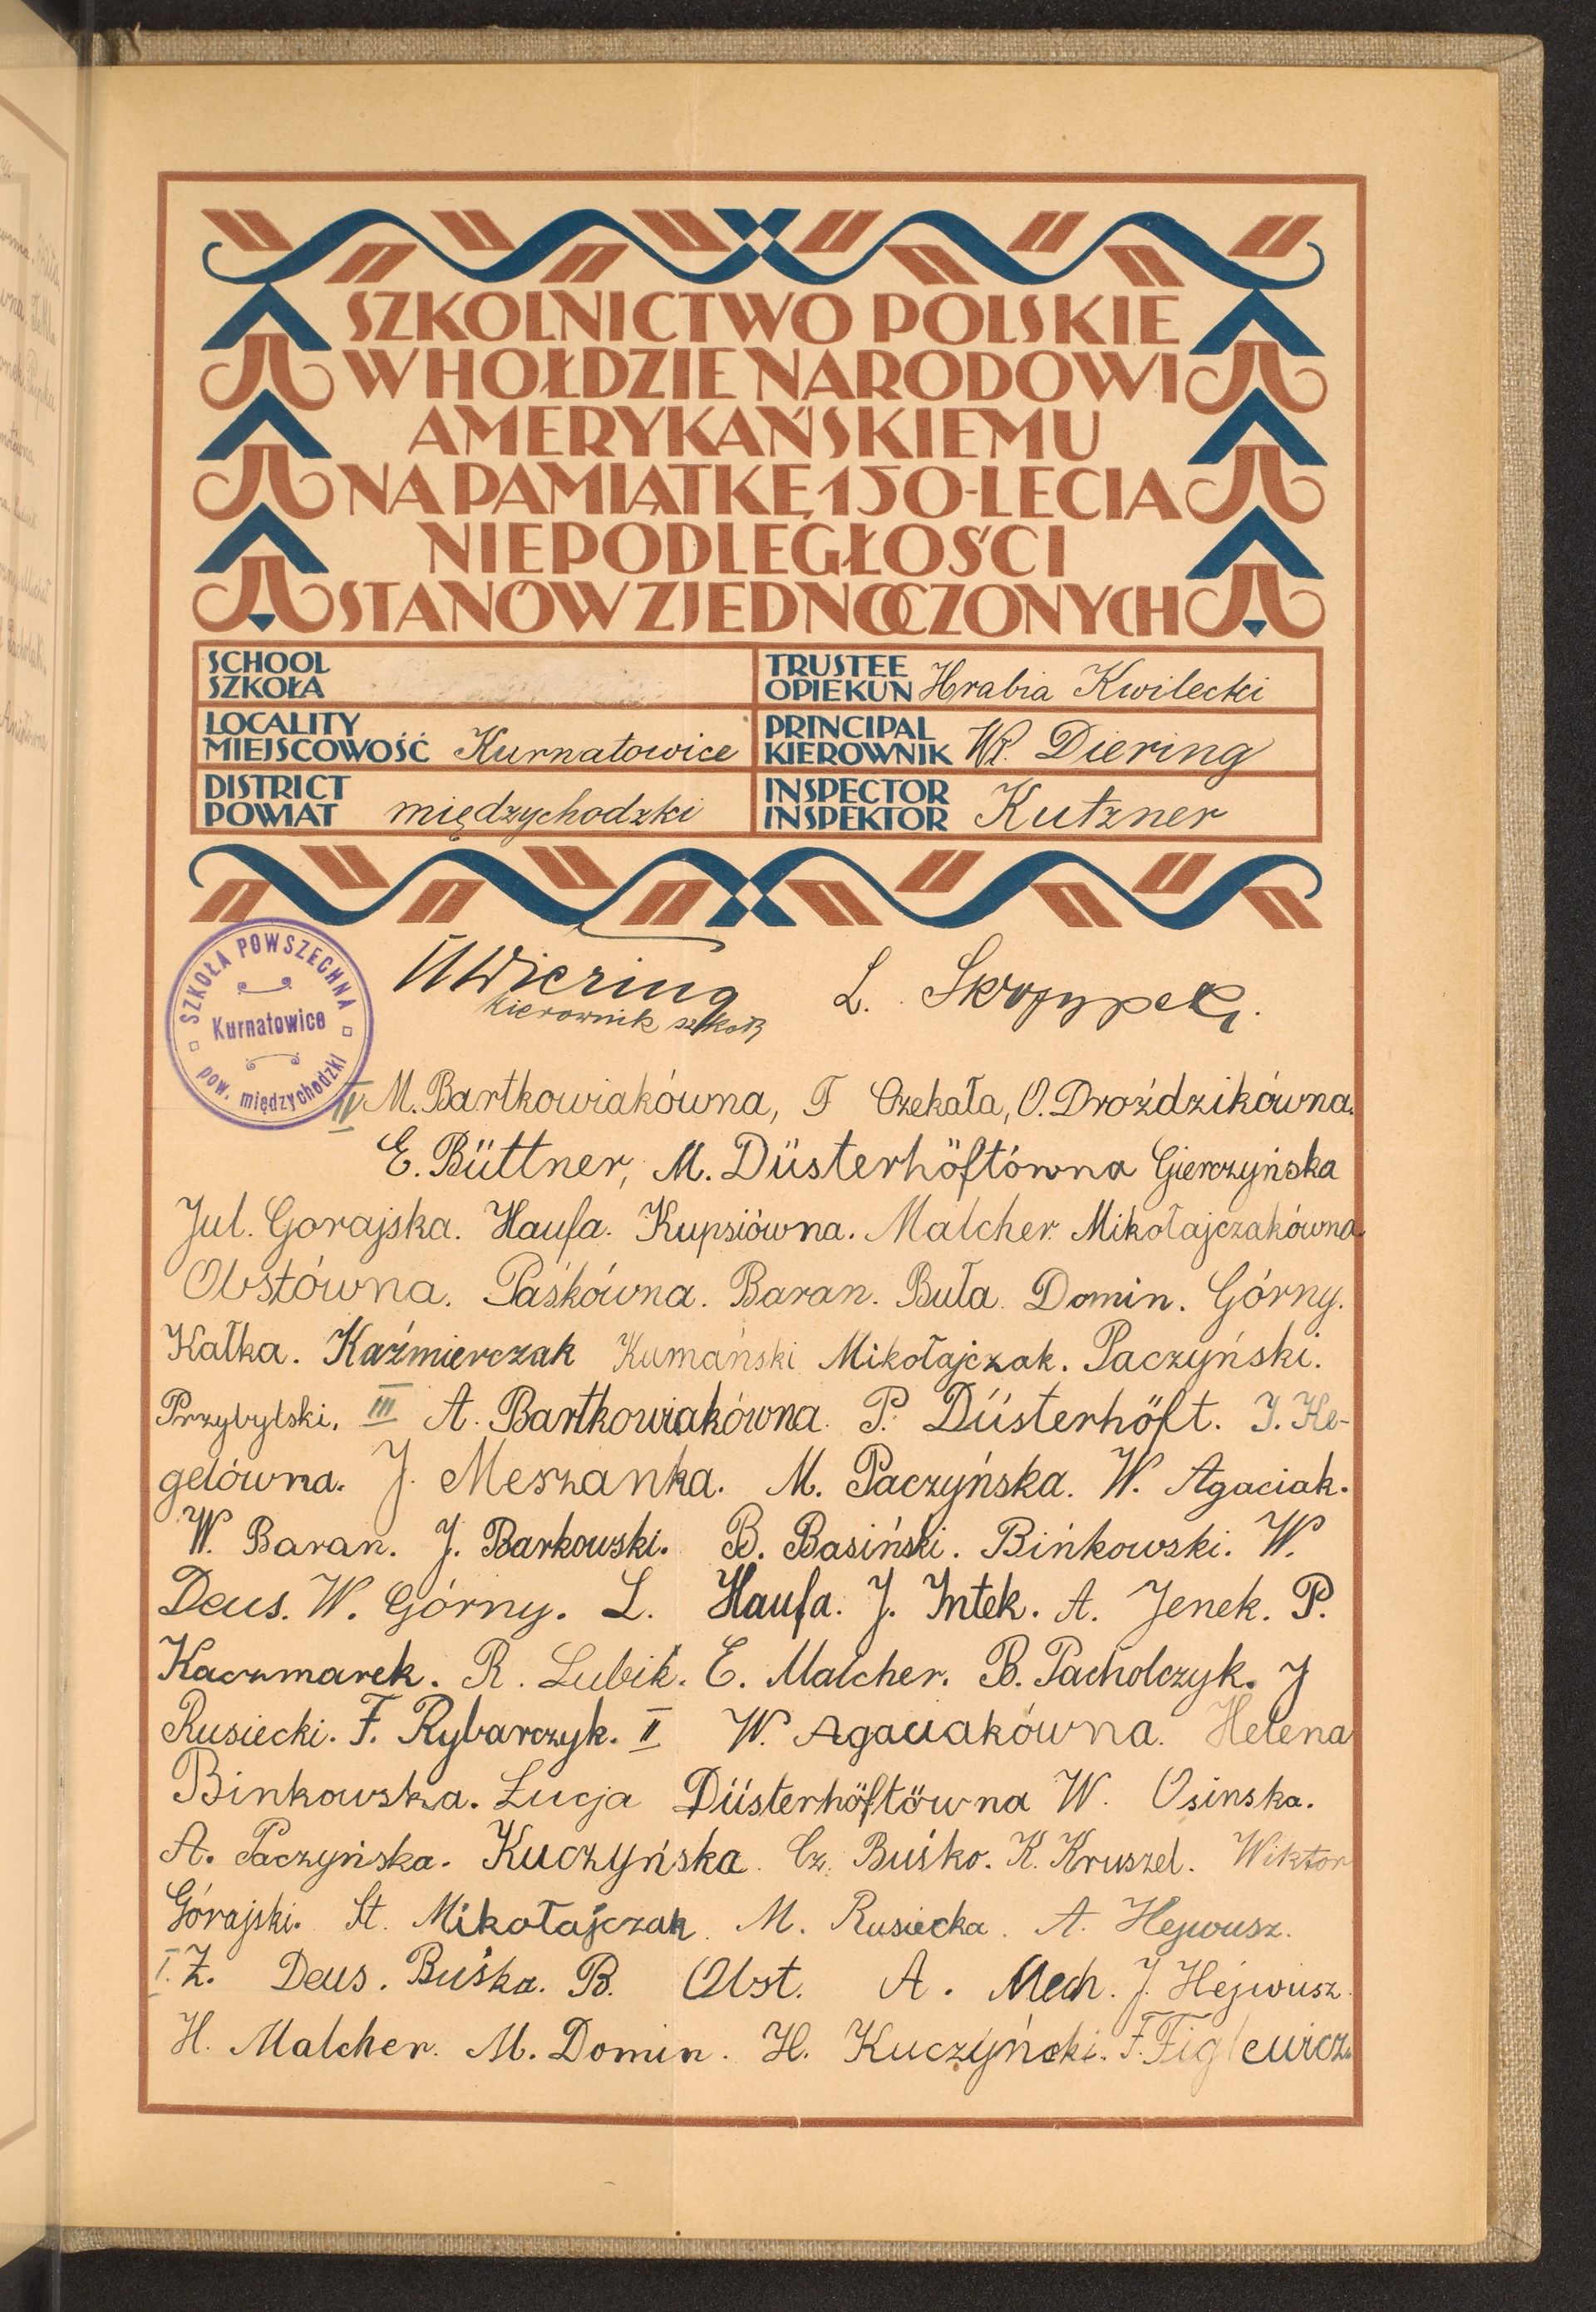 SZKOLNICTWO POLSKIE
W HOŁDZIE NARODOWI
AMERYKAŃSKIEMU
NA PAMIĄTKĘ 150-LECIA
NIEPODLEGŁOŚCI
STANÓW ZJEDNOCZONYCH
SCHOOL
SZKOŁA
TRUSTEE
OPIEKUN Hrabia Kwilecki
LOCALITY
MIEJSCOWOŚĆ Kurnatowice
PRINCIPAL
KIEROWNIK Wł. Diering
DISTRICT
POWIAT międzychodzki
INSPECTOR
INSPEKTOR Kutzner
SZKOŁA POWSZECHNA
Kurnatowice
pow. międzychodzki
WDiering L. Skrzypek
kierownik szkoły
IV M. Bartkowiakówna, F Czekała, O. Droździkówna.
E. Büttner, M. Düsterhöftówna Gierczyńska
Jul. Gorajska. Haufa. Kupsiówna. Malcher. Mikołajczakówna.
Obstówna. Paśkówna. Baran. Buła. Domin. Górny.
Kałka. Kaźmierczak Kumański Mikołajczak. Paczyński.
Przybylski. III A. Bartkowiakówna. P. Düsterhöft. J. He-
gelówna. J. Meszanka. M. Paczyńska. W. Agaciak.
W. Baran. J. Barkowski. B. Basiński. Bińkowski. W.
Deus. W. Górny. L. Haufa. J. Intek. A. Jenek. P.
Kaczmarek. R. Lubik. E. Malcher. B. Pacholczyk. J
Rusiecki. F. Rybarczyk. II W. Agaciakówna. Helena
Binkowska. Łucja Düsterhöftöwna W. Osinska.
A. Paczyńska. Kuczyńska. Cz. Buśko. K. Kruszel. Wiktor
Górajski. St. Mikołajczak. M. Rusiecka. A. Hejwusz.
I. Z. Deus. Buśka. B. Obst. A. Mech. J. Hejwusz.
H. Malcher. M. Domin. H. Kuczyński. F. Figlewicz.